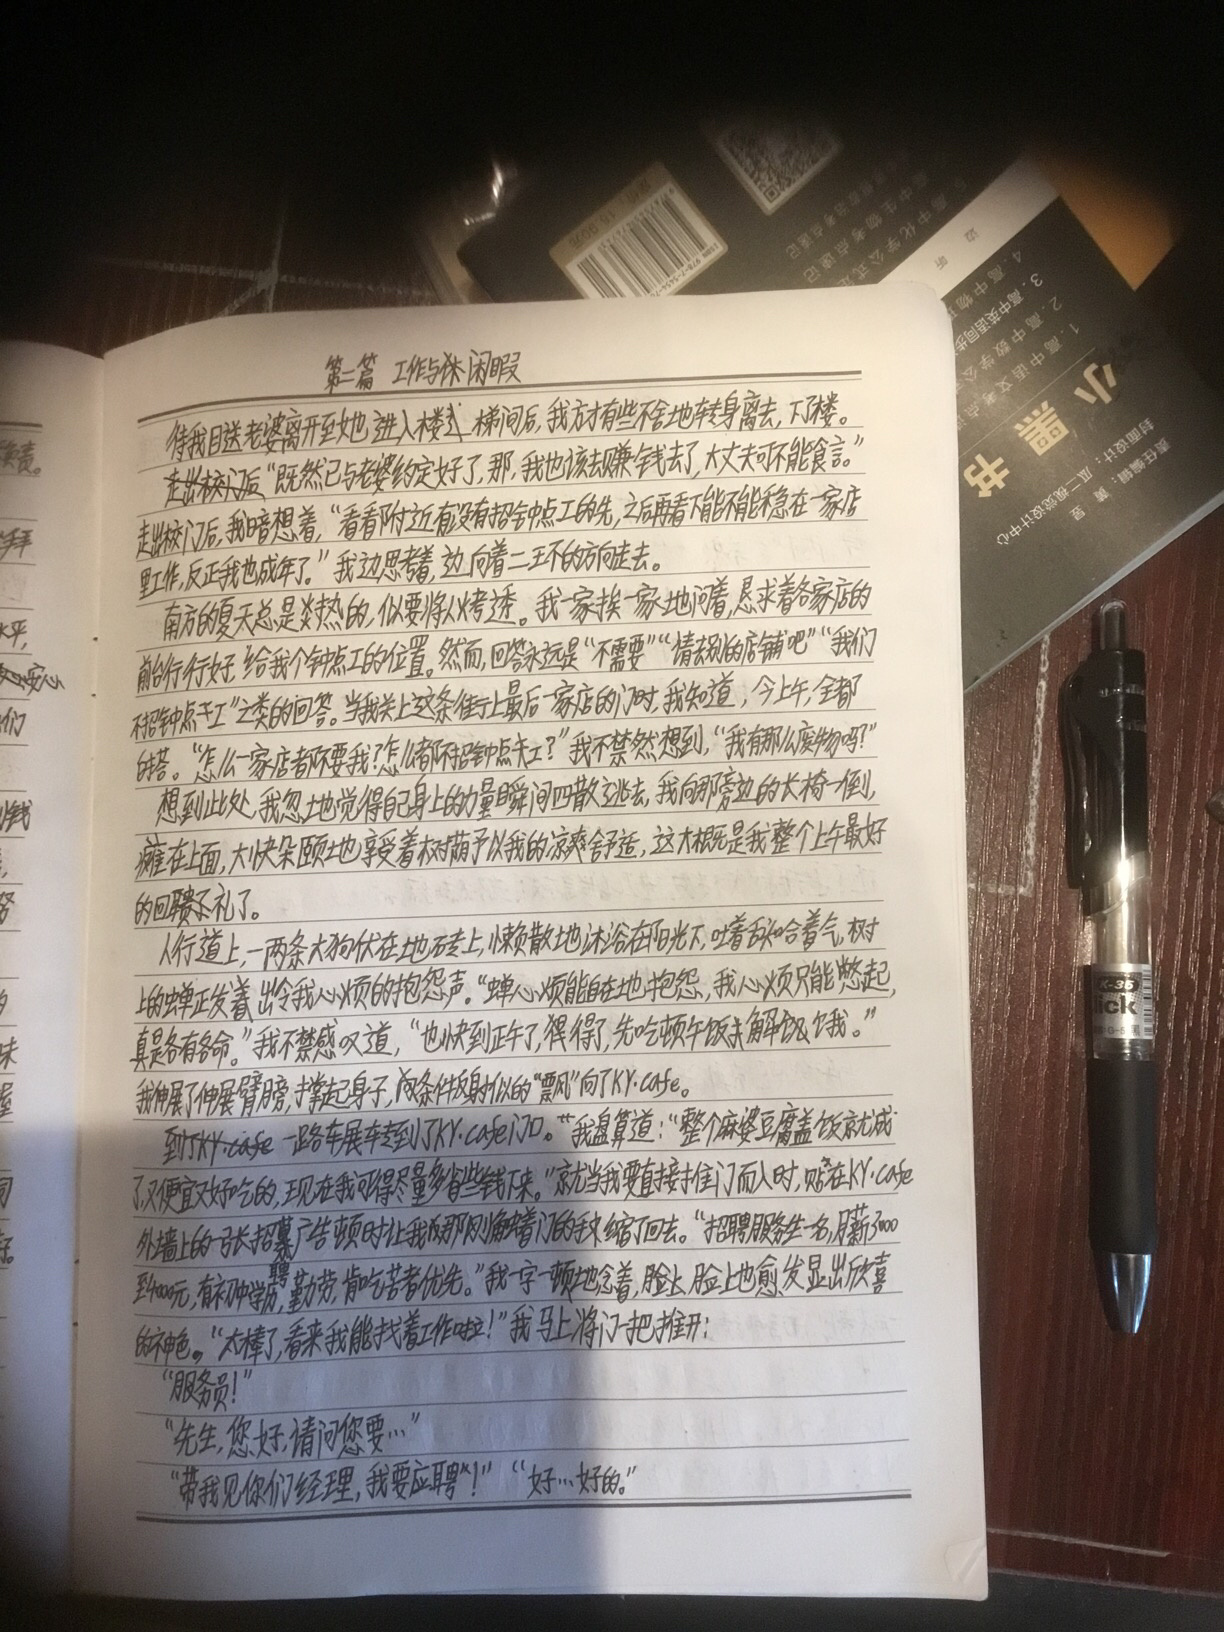 第二篇 工作与休闲暇
待我目送老婆离开至她进入楼梯间后,我方才有些不舍地转身离去,下了楼。
走出校门后“既然已与老婆约定好了,那,我也该去赚钱去了,大丈夫可不能食言。”
走出校门后,我暗想着,“看看附近有没有招钟点工的先,之后再看下能不能稳在一家店
里工作,反正我也成年了。”我边思考着,边向着二王不的方向走去。
南方的夏天总是炎热的,似要将人烤透。我一家挨一家地问着,恳求着各家店的
前台行行好,给我个钟点工的位置。然而,回答永远是“不需要”“请去别的店铺吧”“我们
不招钟点工”之类的回答。当我关上这条街上最后一家店的门时,我知道,今上午,全都
白搭。“怎么一家店者都不要我?怎么者都不招钟点工?”我不禁然想到,“我有那么废物吗?”
想到此处,我忽地觉得自己身上的力量瞬间四散逃去,我向那旁边的长椅一倒,
瘫在上面,大快朵颐地享受着树荫予以我的凉爽舒适,这大概是我整个上午最好
的回赠礼了。
人行道上,一两条大狗伏在地砖上,懒散地沐浴在阳光下,吐着舌头哈着气,树
上的蝉正发着出令我心烦的抱怨声。“蝉心烦能自在地抱怨,我心烦只能憋起,
真是各有各命。”我不禁感叹道,“也快到正午了,得得了,先吃顿午饭来解饥饿。”
我伸展了伸展臂膀,撑起身子,向条件反射似的“飘”向了KY·cafe。
到了KY·cafe 一路车展车走到了KY·cafe门口。“我盘算道:“整个麻婆豆腐盖饭就成
了,又便宜又好吃的,现在我可得尽量多省些钱下来。”就当我要直接推门而入时,贴在KY·cafe
外墙上的一张招募广告顿时让我那刚触着门的手缩了回去。“招聘服务生一名,月薪3000
聘
至4000元,有初中学历,勤劳,肯吃苦者优先。”我一字一顿地念着,脸上,脸上也愈发显出欣喜
的神色。“太棒了,看来我能找着工作啦!”我马上将门一把推开:
“服务员!”
“先生,您好,请问您要…”
“带我见你们经理,我要应聘!” “好…好的。”
小黑书
1.高中语文考点
2.高中数学公式
3.高中英语同步
4.高中物理
高中化学公式定
高中生物考点速记
边听
责任编辑:
封面设计:瓜二视觉设计中心
K-35
lick